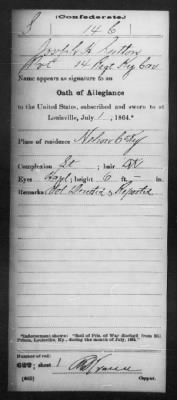 (Confederate)
S 14 C
Joseph H Sutton
Pvt 14 Regt Ky Cav
Name appears as signature to an
Oath of Allegiance
to the United States, subscribed and sworn to at
Louisville, July 1, 1864.*
Place of residence Nelson Cty
Complexion ; hair
Eyes Hazel; height 6 ft. —
Remarks: Vol Deserter & Reported
*Indorsement shows: "Roll of Pris. of War discharged from Mil. Prison, Louisville, Ky., during the month of July, 1864."
Number of roll:
; sheet 1
Copyist.